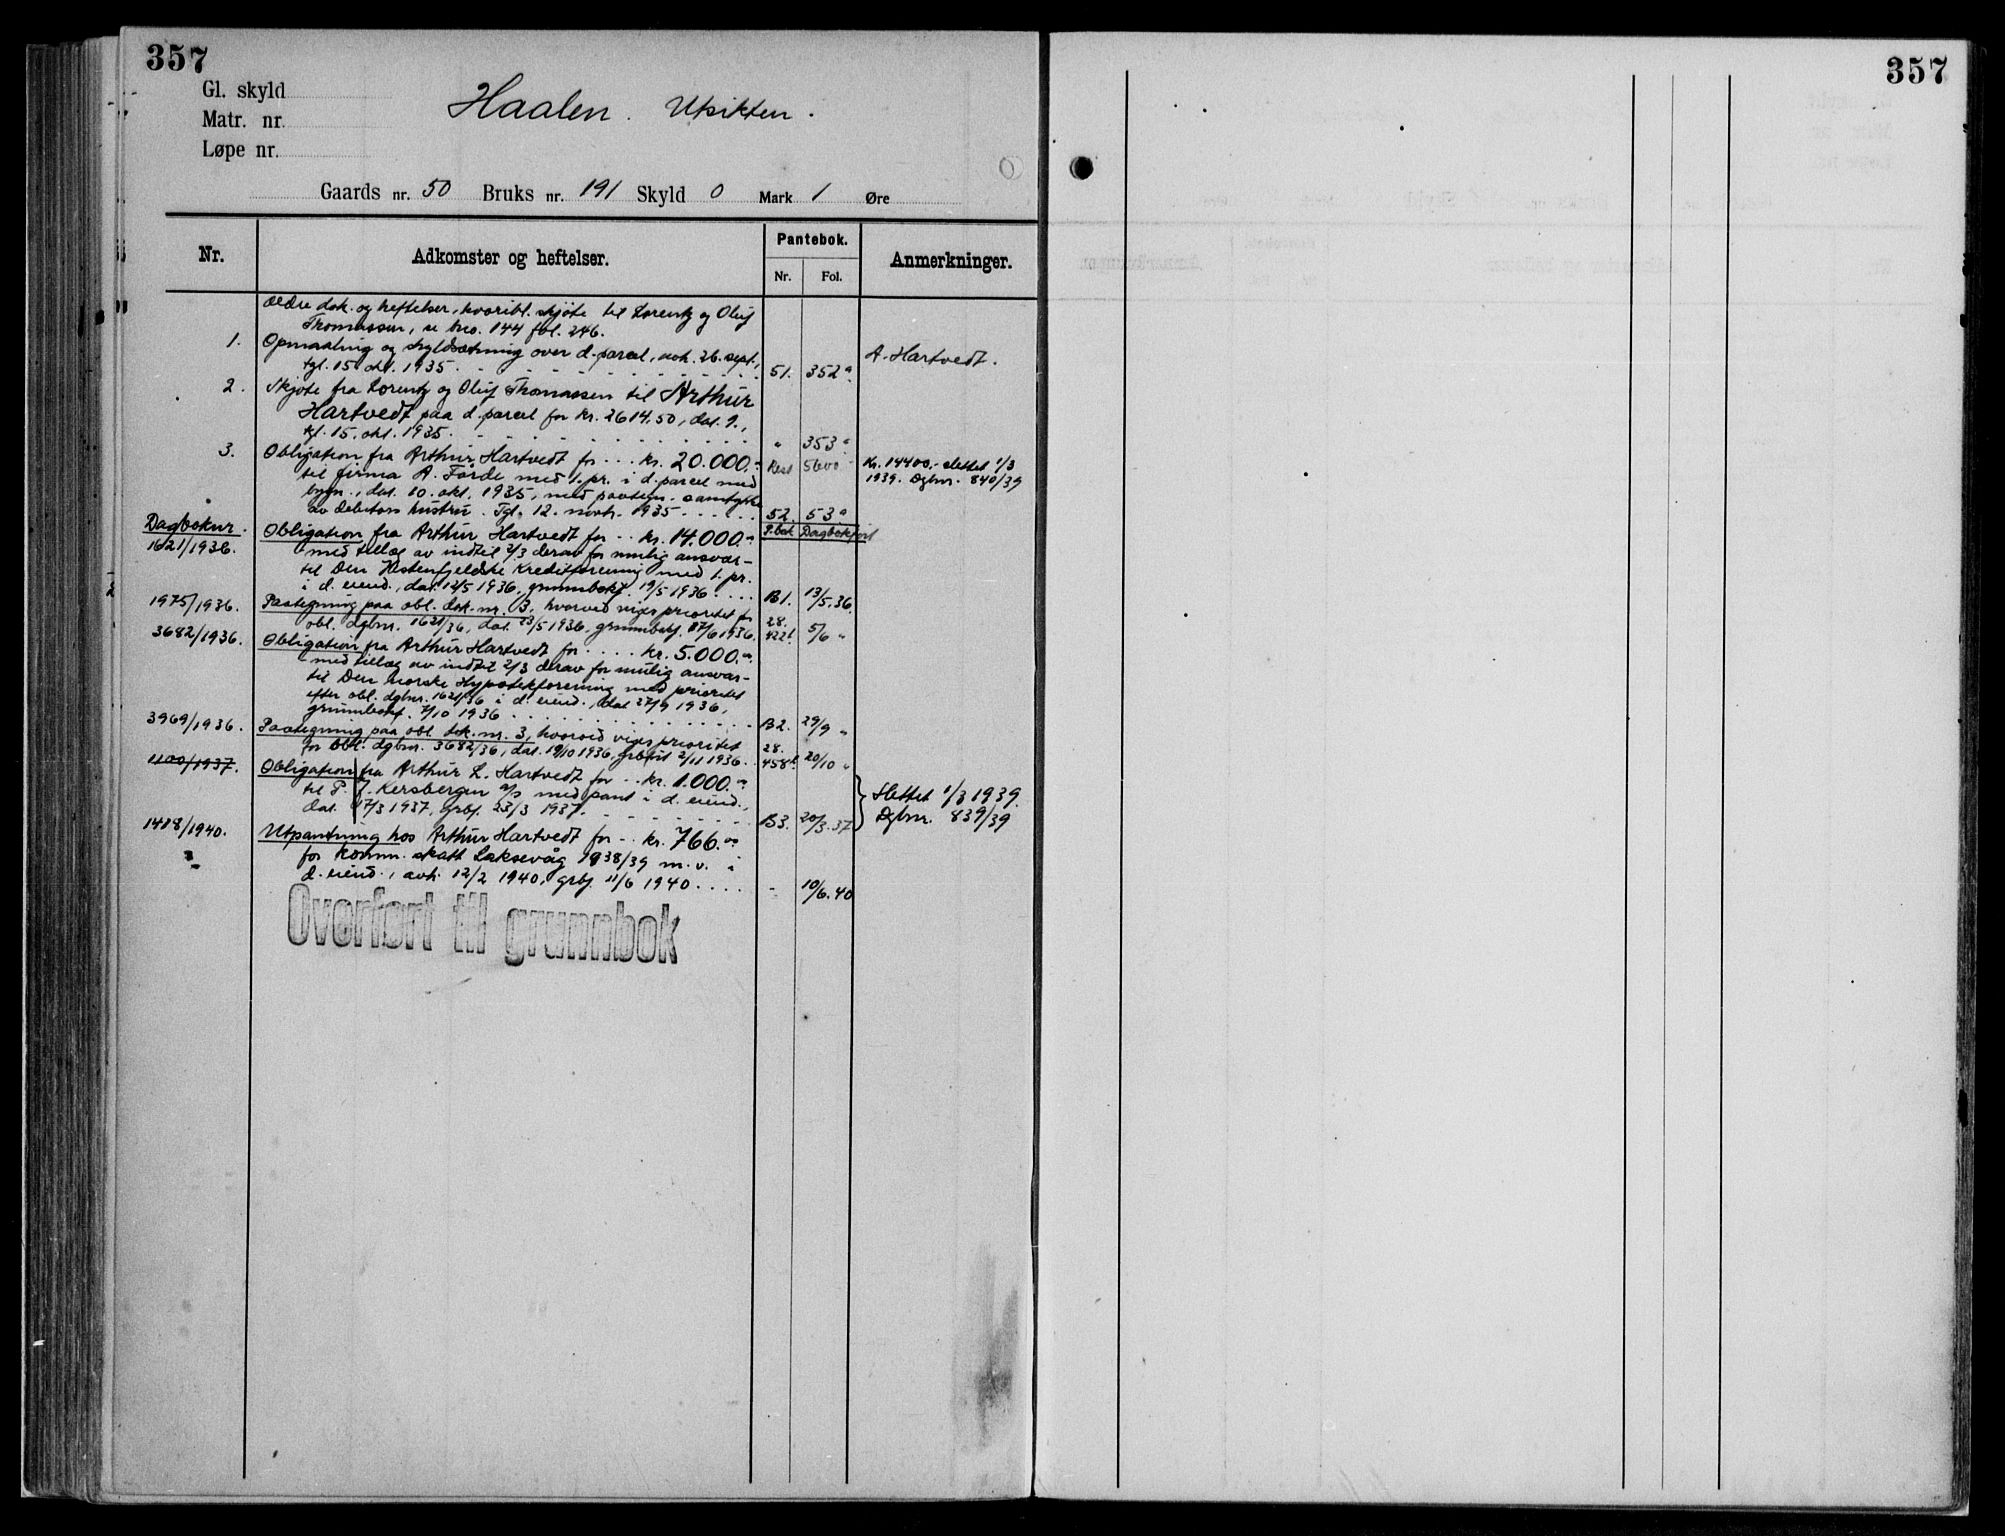 357
357
Gl. skyld
Matr. nr.
Løpe nr.
Haalen. Utsikten.
Gaards nr. 50 Bruks nr. 191 Skyld 0 Mark 1 Øre
Nr. Adkomster og heftelser. Pantebok. Anmerkninger.
Nr. Fol.
Ældre dok. og heftelser, hvoribl. skjøte til Lorentz og Oluf
Thomassen, se bno. 144 fol. 246.
1. Opmaaling og skyldsætning over d. parcel, avh. 26. sept.,
tgl. 15. okt. 1935. 51. 352a A. Hartvedt.
2. Skjøte fra Lorentz og Oluf Thomassen til Arthur
Hartvedt paa d. parcel for kr. 2614,50, dat. 9.,
tgl. 15. okt. 1935. " 353a
3. Obligation fra Arthur Hartvedt for ... kr. 20.000.- Rest 5600 Kr. 14400,- slettet 1/3
til firma A. Førde med 1. pr. i d. parcel med 1939. Dgbnr. 840/39
bygn., dat. 10. okt. 1935, med paategn. samtykke
av debitors hustru. Tgl. 12. novbr. 1935 52. 53a
Dagboknr. P.bok Dagbokført
1621/1936. Obligation fra Arthur Hartvedt for ... kr. 14.000.-
med tillæg av indtil 2/3 derav for mulig ansvar-
til Den Vestenfjeldske Kreditforening med 1. pr.
i d. eiend., dat. 12/5 1936, grunnbokf. 19/5 1936 .... B1. 13/5.36.
1975/1936. Paategning paa obl. dok. nr. 3, hvorved viges prioritet for
obl. dgbnr. 1621/36, dat. 23/5 1936, grunnbokf. 17/6 1936. 28. 422b 5/6 "
3682/1936. Obligation fra Arthur Hartvedt for .... kr. 5.000.-
med tillæg av indtil 2/3 derav for mulig ansvar-
til Den norske Hypotekforening med prioritet
efter obl. dgbnr. 1621/36 i d. eiend., dat. 27/9 1936,
grunnbokf. 7/10 1936 B2. 29/9 "
3969/1936. Paategning paa obl. dok. nr. 3, hvorved viges prioritet
for obl. dgbnr. 3682/36, dat. 19/10 1936, grbført 2/11 1936. 28. 458b 20/10 "
1100/1937. Obligation fra Arthur L. Hartvedt for ... kr. 1.000.-
til P. J. Kersbergen a/s med pant i d. eiend., Slettet 1/3 1939.
dat. 17/3 1937, grbf. 23/3 1937. B3. 20/3.37 Dgbnr. 839/39
1418/1940. Utpantning hos Arthur Hartvedt for ... kr. 766.00
for komm. skatt Laksevåg 1938/39 m.v. i
d. eiend., avh. 12/2 1940, grbf. 11/6 1940 .... - 10/6.40
Overført til grunnbok